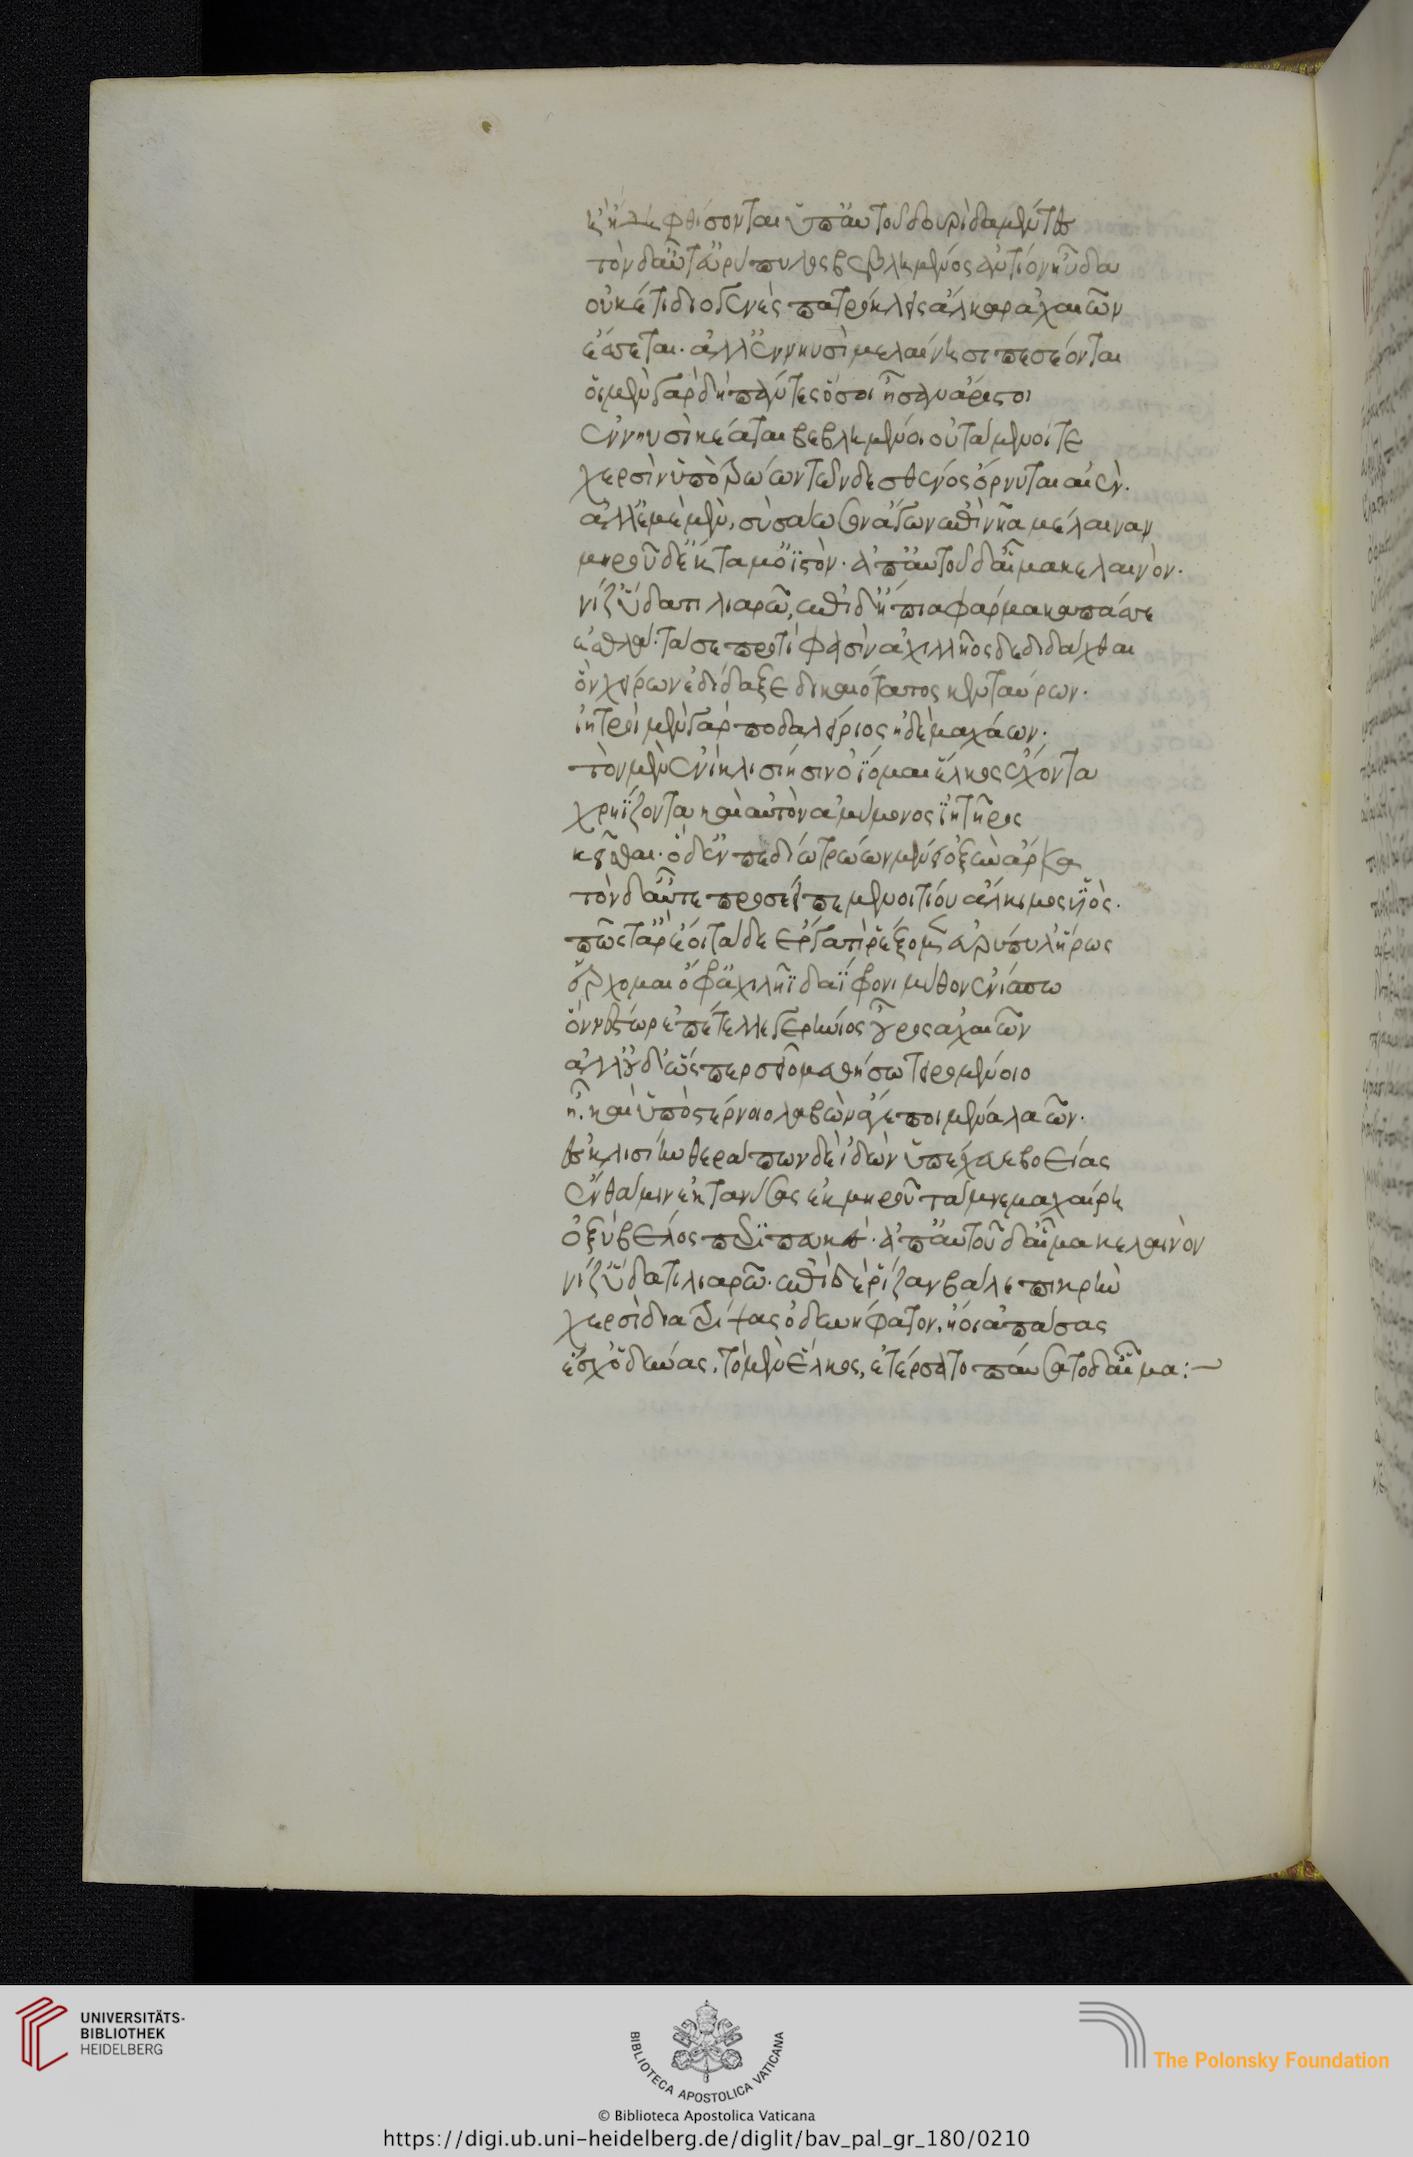 ἢ ἤδη φθίσονται ὑπ' αὐτοῦ δουρὶ δαμέντες
τὸν δ' αὖτ' εὐρύπυλος βεβλημένος ἀντίον ηὔδα
οὐκέτι διογενὲς πατρόκλεις ἄλκαρ ἀχαιῶν
ἔσσεται. ἀλλ' ἐν νηυσὶ μελαίνησι πεσέονται
οἱ μὲν γὰρ δὴ πάντες ὅσοι ἦσαν ἄριστοι
ἐν νηυσὶ κέαται βεβλημένοι οὐτάμενοί τε
χερσὶν ὑπὸ τρώων τῶν δε σθένος ὄρνυται αἰέν.
ἀλλ' ἐμὲ μὲν, σὺ σάωσον ἄγων ἐπὶ νῆα μέλαιναν
μηροῦ δ' ἔκταμ' ὀϊστόν. ἀπ' αὐτοῦ δ' αἷμα κελαινόν.
νίζ' ὕδατι λιαρῶ, ἐπὶ δ' ἤπια φάρμακα πάσσε
ἐσθλά. τά σε προτί φασιν ἀχιλλῆος δεδιδάχθαι
ὃν χείρων ἐδίδαξε δικαιότατος κενταύρων.
ἰητροὶ μὲν γὰρ ποδαλείριος ἠδὲ μαχάων.
τὸν μὲν ἐνὶ κλισίησιν ὀΐομαι ἕλκος ἔχοντα
χρηΐζοντα καὶ αὐτὸν ἀμύμονος ἰητῆρος
κεῖσθαι. ὁ δ' ἐν πεδίω τρώων μένει ὀξὺν ἄρηα
τὸν δ' αὖτε προσέειπε μενοιτίου ἄλκιμος υἱός.
πῶς τ' ἂρ ἔοι τάδε ἔργα τί ῥέξομεν εὐρύπυλ' ἥρως
ἔρχομαι ὄφρ' ἀχιλῆϊ δαΐφρονι μῦθον ἐνίσπω
ὃν νέστωρ ἐπέτελλε γερήνιος οὖρος ἀχαιῶν
ἀλλ' οὐδ' ὥς περ σεῖο μεθήσω τειρομένοιο
ἦ. καὶ ὑπὸ στέρνοιο λαβὼν ἄγε ποιμένα λαῶν.
ἐς κλισίην θεράπων δὲ ἰδὼν ὑπέχευε βοείας
ἔνθά μιν ἐκτανύσας ἐκ μηροῦ τάμνε μαχαίρη
ὀξὺ βέλος περιπευκές. ἀπ' αὐτοῦ δ' αἷμα κελαινὸν
νίζ' ὕδατι λιαρῶ. ἐπὶ δὲ ῥίζαν βάλε πικρὴν
χερσὶ διατρίψας ὀδυνήφατον. ἥ οἱ ἁπάσας
ἔσχ' ὀδύνας. τὸ μὲν ἕλκος, ἐτέρσετο παύσατο δ' αἷμα:
UNIVERSITÄTS-
BIBLIOTHEK
HEIDELBERG
BIBLIOTECA APOSTOLICA VATICANA
The Polonsky Foundation
© Biblioteca Apostolica Vaticana
https://digi.ub.uni-heidelberg.de/diglit/bav_pal_gr_180/0210